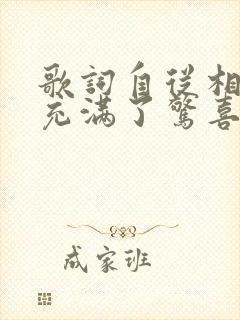 歌詞自從相
充滿了驚喜
成家班